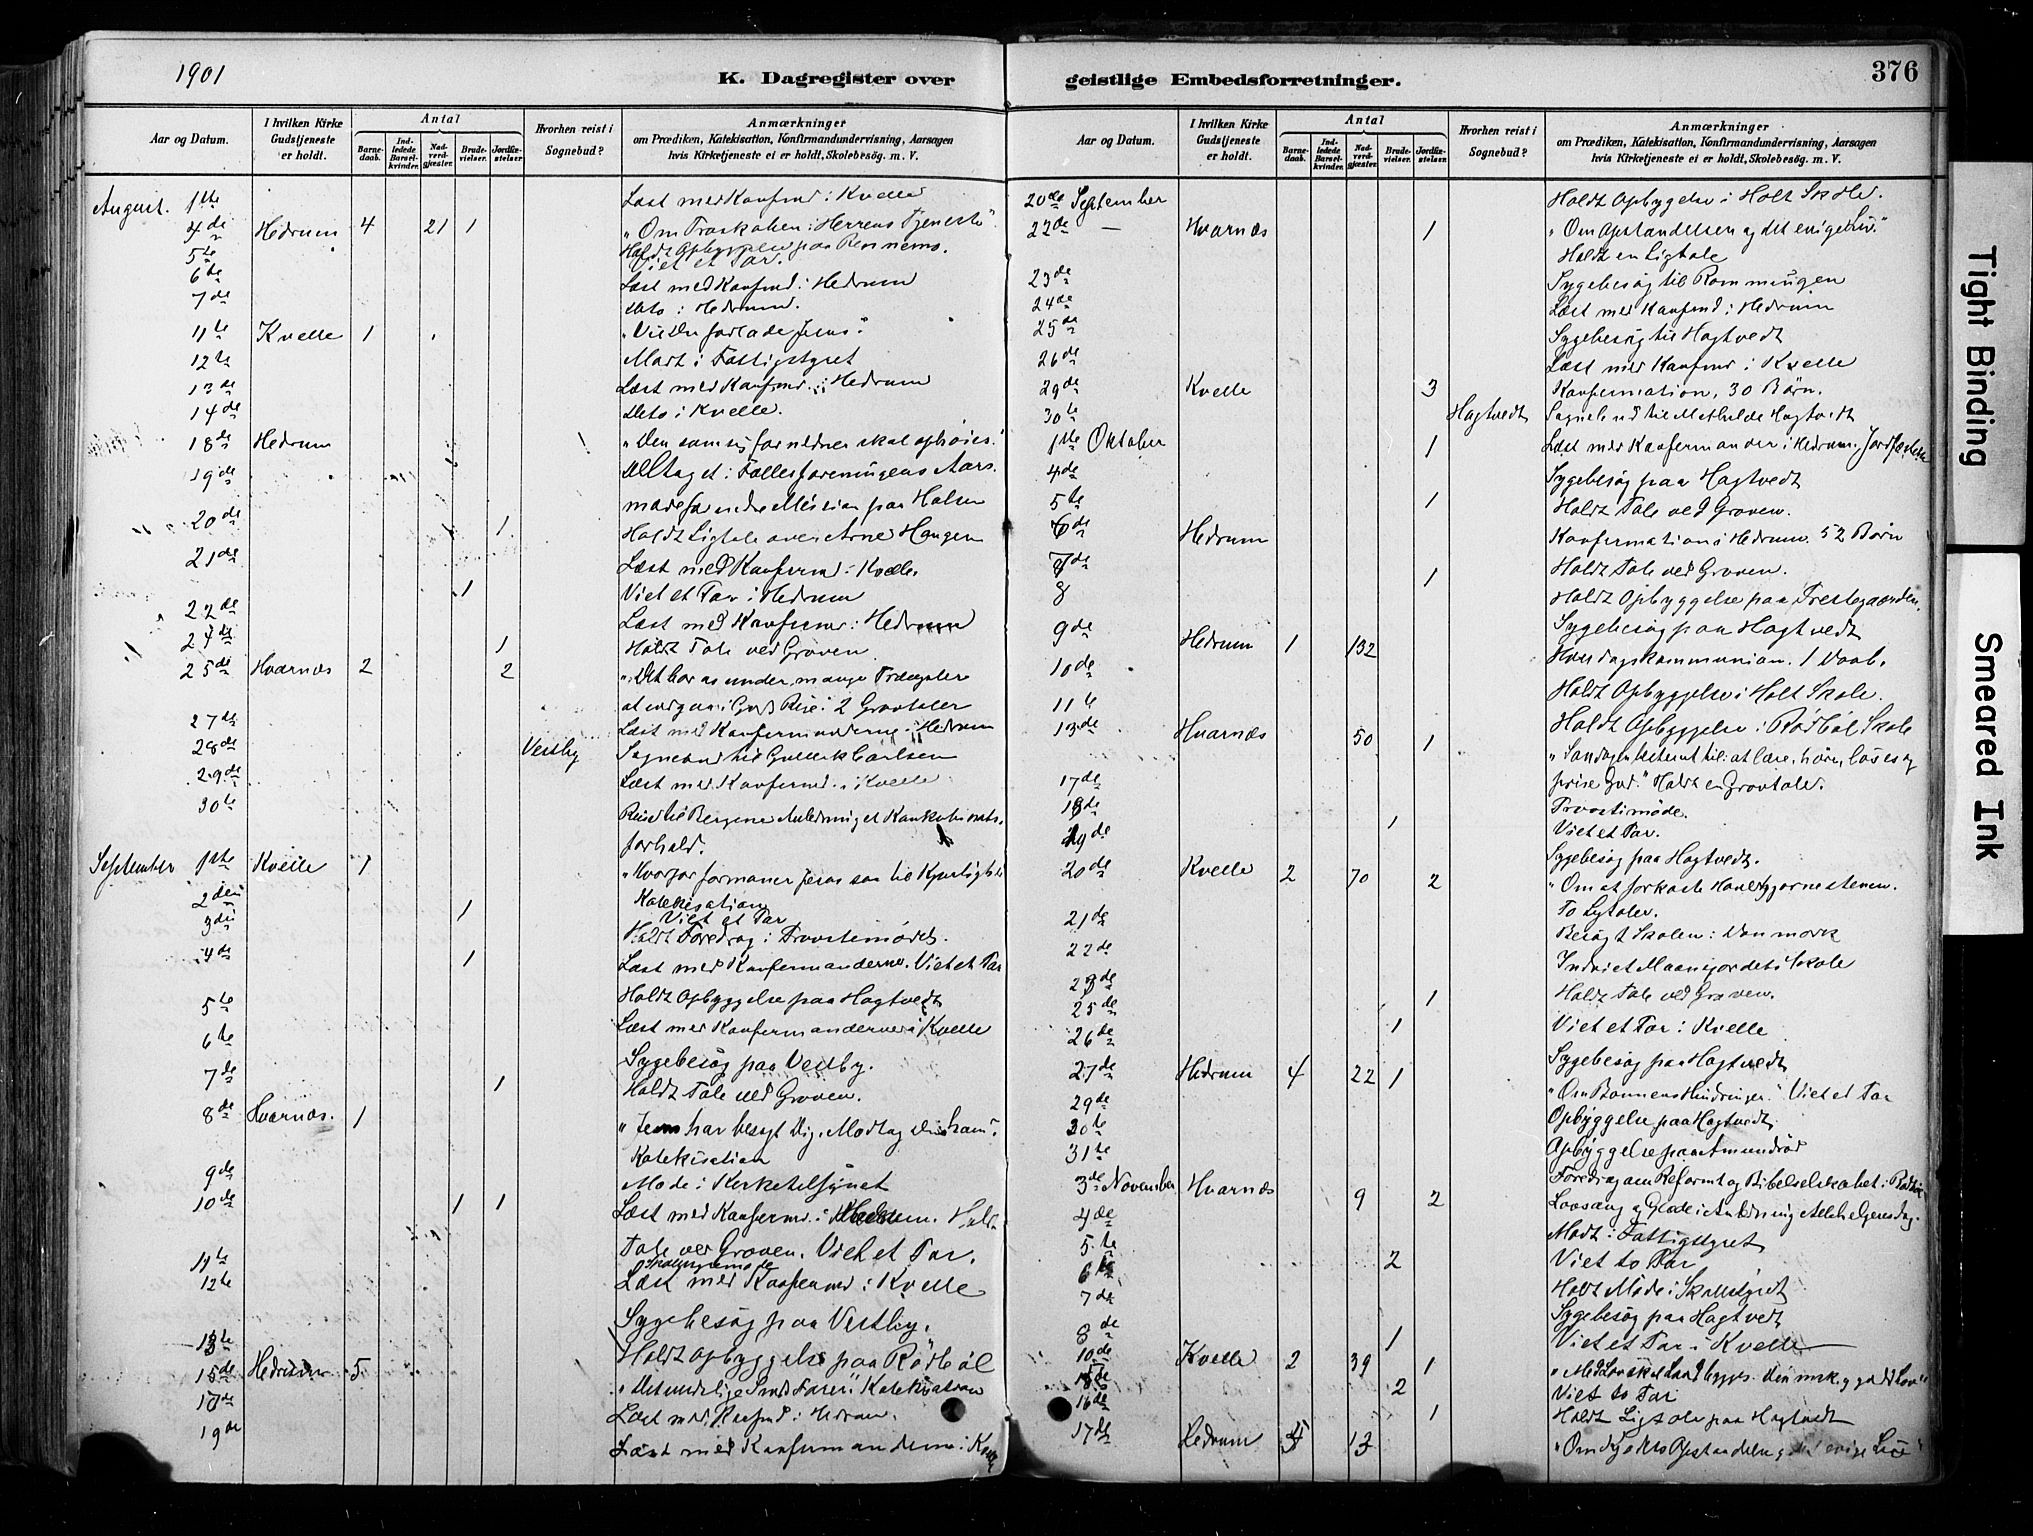 1901
K. Dagregister over
geistlige Embedsforretninger.
376
Aar og Datum.
I hvilken Kirke Gudstjeneste er holdt.
Antal
Barne-daab.
Ind-ledede Barsel-kvinder.
Nad-verd-gjæster.
Brude-vielser.
Jordfæ-stelser.
Hvorhen reist i Sognebud?
Anmærkninger
om Prædiken, Katekisation, Konfirmandundervisning, Aarsagen
hvis Kirketjeneste ei er holdt, Skolebesøg. m. V.
August. 1ste Læst med Konfmd i Kvelle
4de Hedrum 4 21 1 "Om Troskaben i Herrens Tjeneste"
5te Holdt Opbyggelse paa Rennems.
Viet et Par.
6te Læst med Konfmd i Hedrum
7de dito i Hedrum.
11te Kvelle 1 "Vil De forlade Jesus"
12te Mødt i Fattigstyret
13de Læst med Konfmd. i Hedrum
14de dito i Kvelle.
18de Hedrum "Den som sig fornedrer skal ophøies."
19de Deltaget i Fællesforeningens Aars-
møde for indre Mission paa Halsen
20de 1 Holdt Ligtale over Arne Haugen
21de Læst med Konfirmd i Kvelle.
1 Viet et Par i Hedrum
22de Læst med Konfirmd i Hedrum
24de 1 Holdt Tale ved Graven
25de Hvarnæs 2 2 "Det bør os under mange Trængsler
at indgaa i Guds Rige" 2 Gravtaler
27de Læst med Konfirmanderne i Hedrum
28de Vestby Sognebud til Carlsen
29de Læst med Konfirmd. i Kvelle
30te Reist til Bergene Anledning et Konkubinats-
forhold.
September 1ste Kvelle 1 "Hvorfor formaner Jesus saa til Kjærlighed
Katekisation
2den 1 Viet et Par
3die Holdt Foredrag i Provstemødet.
4de 1 Læst med Konfirmanderne. Viet et Par
5te Holdt Opbyggelse paa Hagtvedt
6te Læst med Konfirmanderne i Kvelle
7de Sygebesøg paa Vestby.
1 Holdt Tale ved Graven.
8de Hvarnæs. 1 "Jesus har besøgt Dig. Modtag ham".
Katekisation
9de Møde i Kirketilsynet
10de 1 1 Læst med Konfirmd. i Hedrum. Holdt
Tale ved Graven. Viet et Par.
11te
12te Læst med Konfirmd i Kvelle
Sygebesøg paa Vestby.
13te Holdt Opbyggelse paa Rødbøl
15de Hedrum 5 "Det Farer" Katekisation
17de Læst med Konfmd i Hedrum.
19de Læst med Konfirmanderne i Kvelle
Aar og Datum.
I hvilken Kirke Gudstjeneste er holdt.
Antal
Barne-daab.
Ind-ledede Barsel-kvinder.
Nad-verd-gjæster.
Brude-vielser.
Jordfæ-stelser.
Hvorhen reist i Sognebud?
Anmærkninger
om Prædiken, Katekisation, Konfirmandundervisning, Aarsagen
hvis Kirketjeneste ei er holdt, Skolebesøg. m. V.
20de September Holdt Opbyggelse i Holt Skole.
22de — Hvarnæs 1 "Om Opstandelsen og det evige Liv."
Holdt en Ligtale
23de Sygebesøg til Rommungen
24de Læst med Konfmd i Hedrum
25de Sygebesøg til Hagtvedt
26de Læst med Konfmd i Kvelle
29de Kvelle 3 Konfirmation, 30 Børn.
30te Hagtvedt Sognebud til Mathilde Hagtvedt
1ste Oktober 1 Læst med Konfirmander i Hedrum, Jordfæstelse
4de Sygebesøg paa Hagtvedt
5te 1 Holdt Tale ved Graven.
6de Hedrum Konfirmation i Hedrum. 52 Børn
7de 1 Holdt Tale ved Graven.
8 Holdt Opbyggelse paa Prestegaarden.
9de Hedrum 1 132 Sygebesøg paa Hagtvedt
Hverdagskommunion. 1 Daab.
10de Holdt Opbyggelse i Holt Skole.
11te Holdt Opbyggelse i Rødbøl Skole
13de Hvarnæs 50 1 "Søndagen til: at lære, høre, og
prise Gud." Holdt en Gravtale.
17de Provstimøde.
18de 1 Viet et Par.
19de Sygebesøg paa Hagtvedt.
20de Kvelle 2 70 2 "Om at forkaste Hovedhjørnestenen.
To Ligtaler.
21de Besøgt Skolen i Danmark
22de Indviet Maanejordets Skole
23de 1 Holdt Tale ved Graven.
25de 1 Viet et Par i Kvelle
26de Sygebesøg paa Hagtvedt
27de Hedrum 4 22 1 "Om Bønnens Hindringer." Viet et Par
29de Opbyggelse paa Hagtvedt
30te Opbyggelse paa Amundrød
31te Foredrag om Reformt og Bibelselskabet i
3de November Hvarnæs 9 2 Lovsang og Glæde i Anledning Allehelgensdag.
4de Mødt i Fattigstyret
5te 2 Viet to Par
6te Holdt Møde i Skolestyret
7de Sygebesøg paa Hagtvedt
8de 1 Viet et Par i Kvelle
10de Kvelle 2 39 1 "Med Lov skal Land bygges.
15de 2 Viet to Par
16de 1 Holdt Ligtale paa Hagtvedt
17de Hedrum 13 "Om Opstandelse evige Liv"
Tight Binding
Smeared Ink